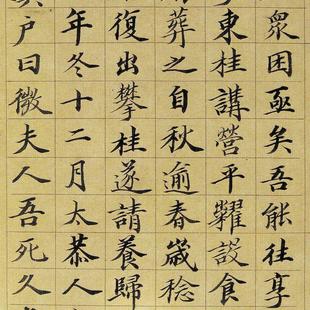 眾困亟矣吾能往享
東桂講營平糶設食
葬之自秋逾春歲稔
復出攀桂遂請養歸
年冬十二月太恭人
戶曰微夫人吾死久